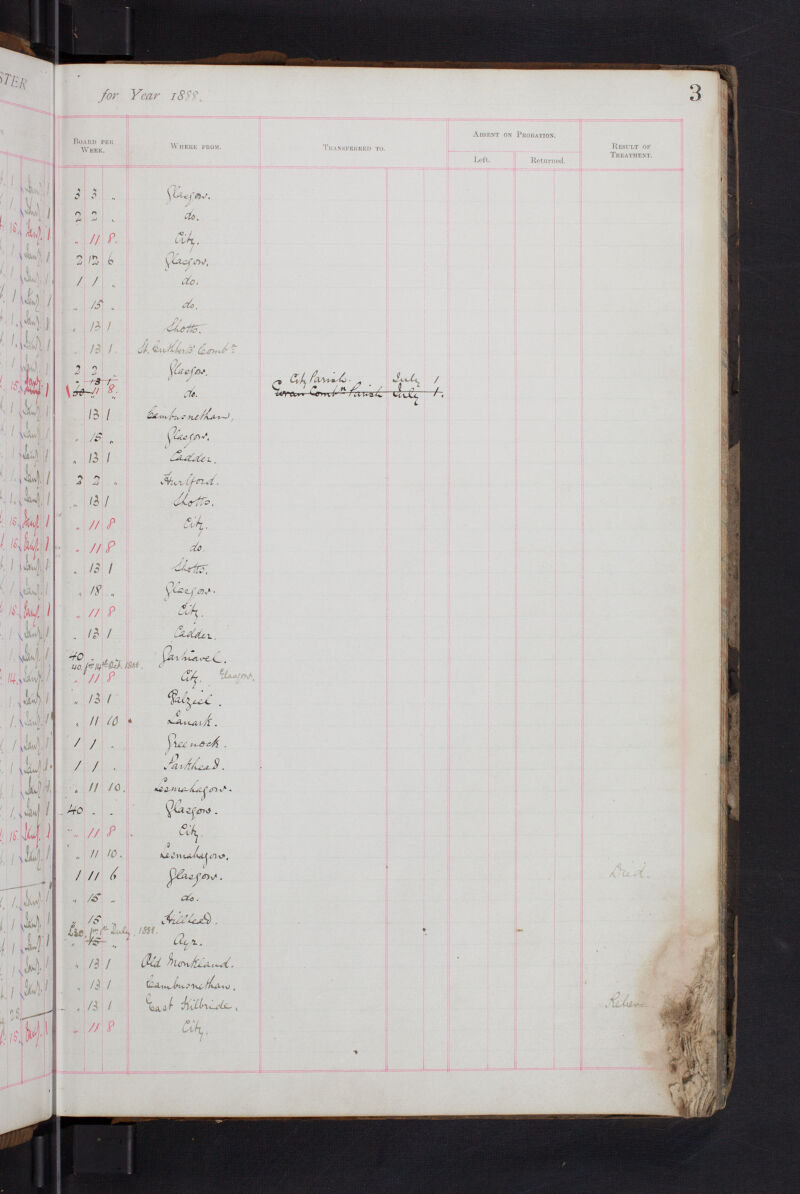 for Year 1888. 3
Board per Week. Where from. Transferred to. Absent on Probation. Left. Returned. Result of Treatment.
3 3 " Glasgow.
2 2 " do.
" 11 8. City.
2 12 6 Glasgow.
1 1 " do.
" 15 " do.
" 13 1 Shotts.
" 13 1 St. Cuthbert's Combn
2 2 " Glasgow.
" 13 1 City Parish July 1
11 8. do. Govan Combn Parish July 1.
13 1 Cambusnethan,
" 15 " Glasgow.
" 13 1 Cadder.
2 2 " Hurlford.
" 13 1 Shotts.
" 11 8 City.
" 11 8 do
" 13 1 Shotts.
" 18 " Glasgow.
" 11 8 City.
" 13 1 Cadder.
40 Gartnavel.
40. pr 14th Feb. 1888.
" 11 8 City. Glasgow.
" 13 1 Dalziel.
" 11 10 Lanark.
1 1 " Greenock.
1 1 " Parkhead.
" 11 10. Lesmahagow.
40 " " Glasgow.
" 11 8 City.
" 11 10. Lesmahagow.
1 11 6 Glasgow. Died.
" 15 " do.
" 15 Hillhead.
pr 1st July, 1888.
" 15 " Ayr.
" 13 1 Old Monkland.
" 13 1 Cambusnethan.
" 13 1 East Kilbride.
" 11 8 City.